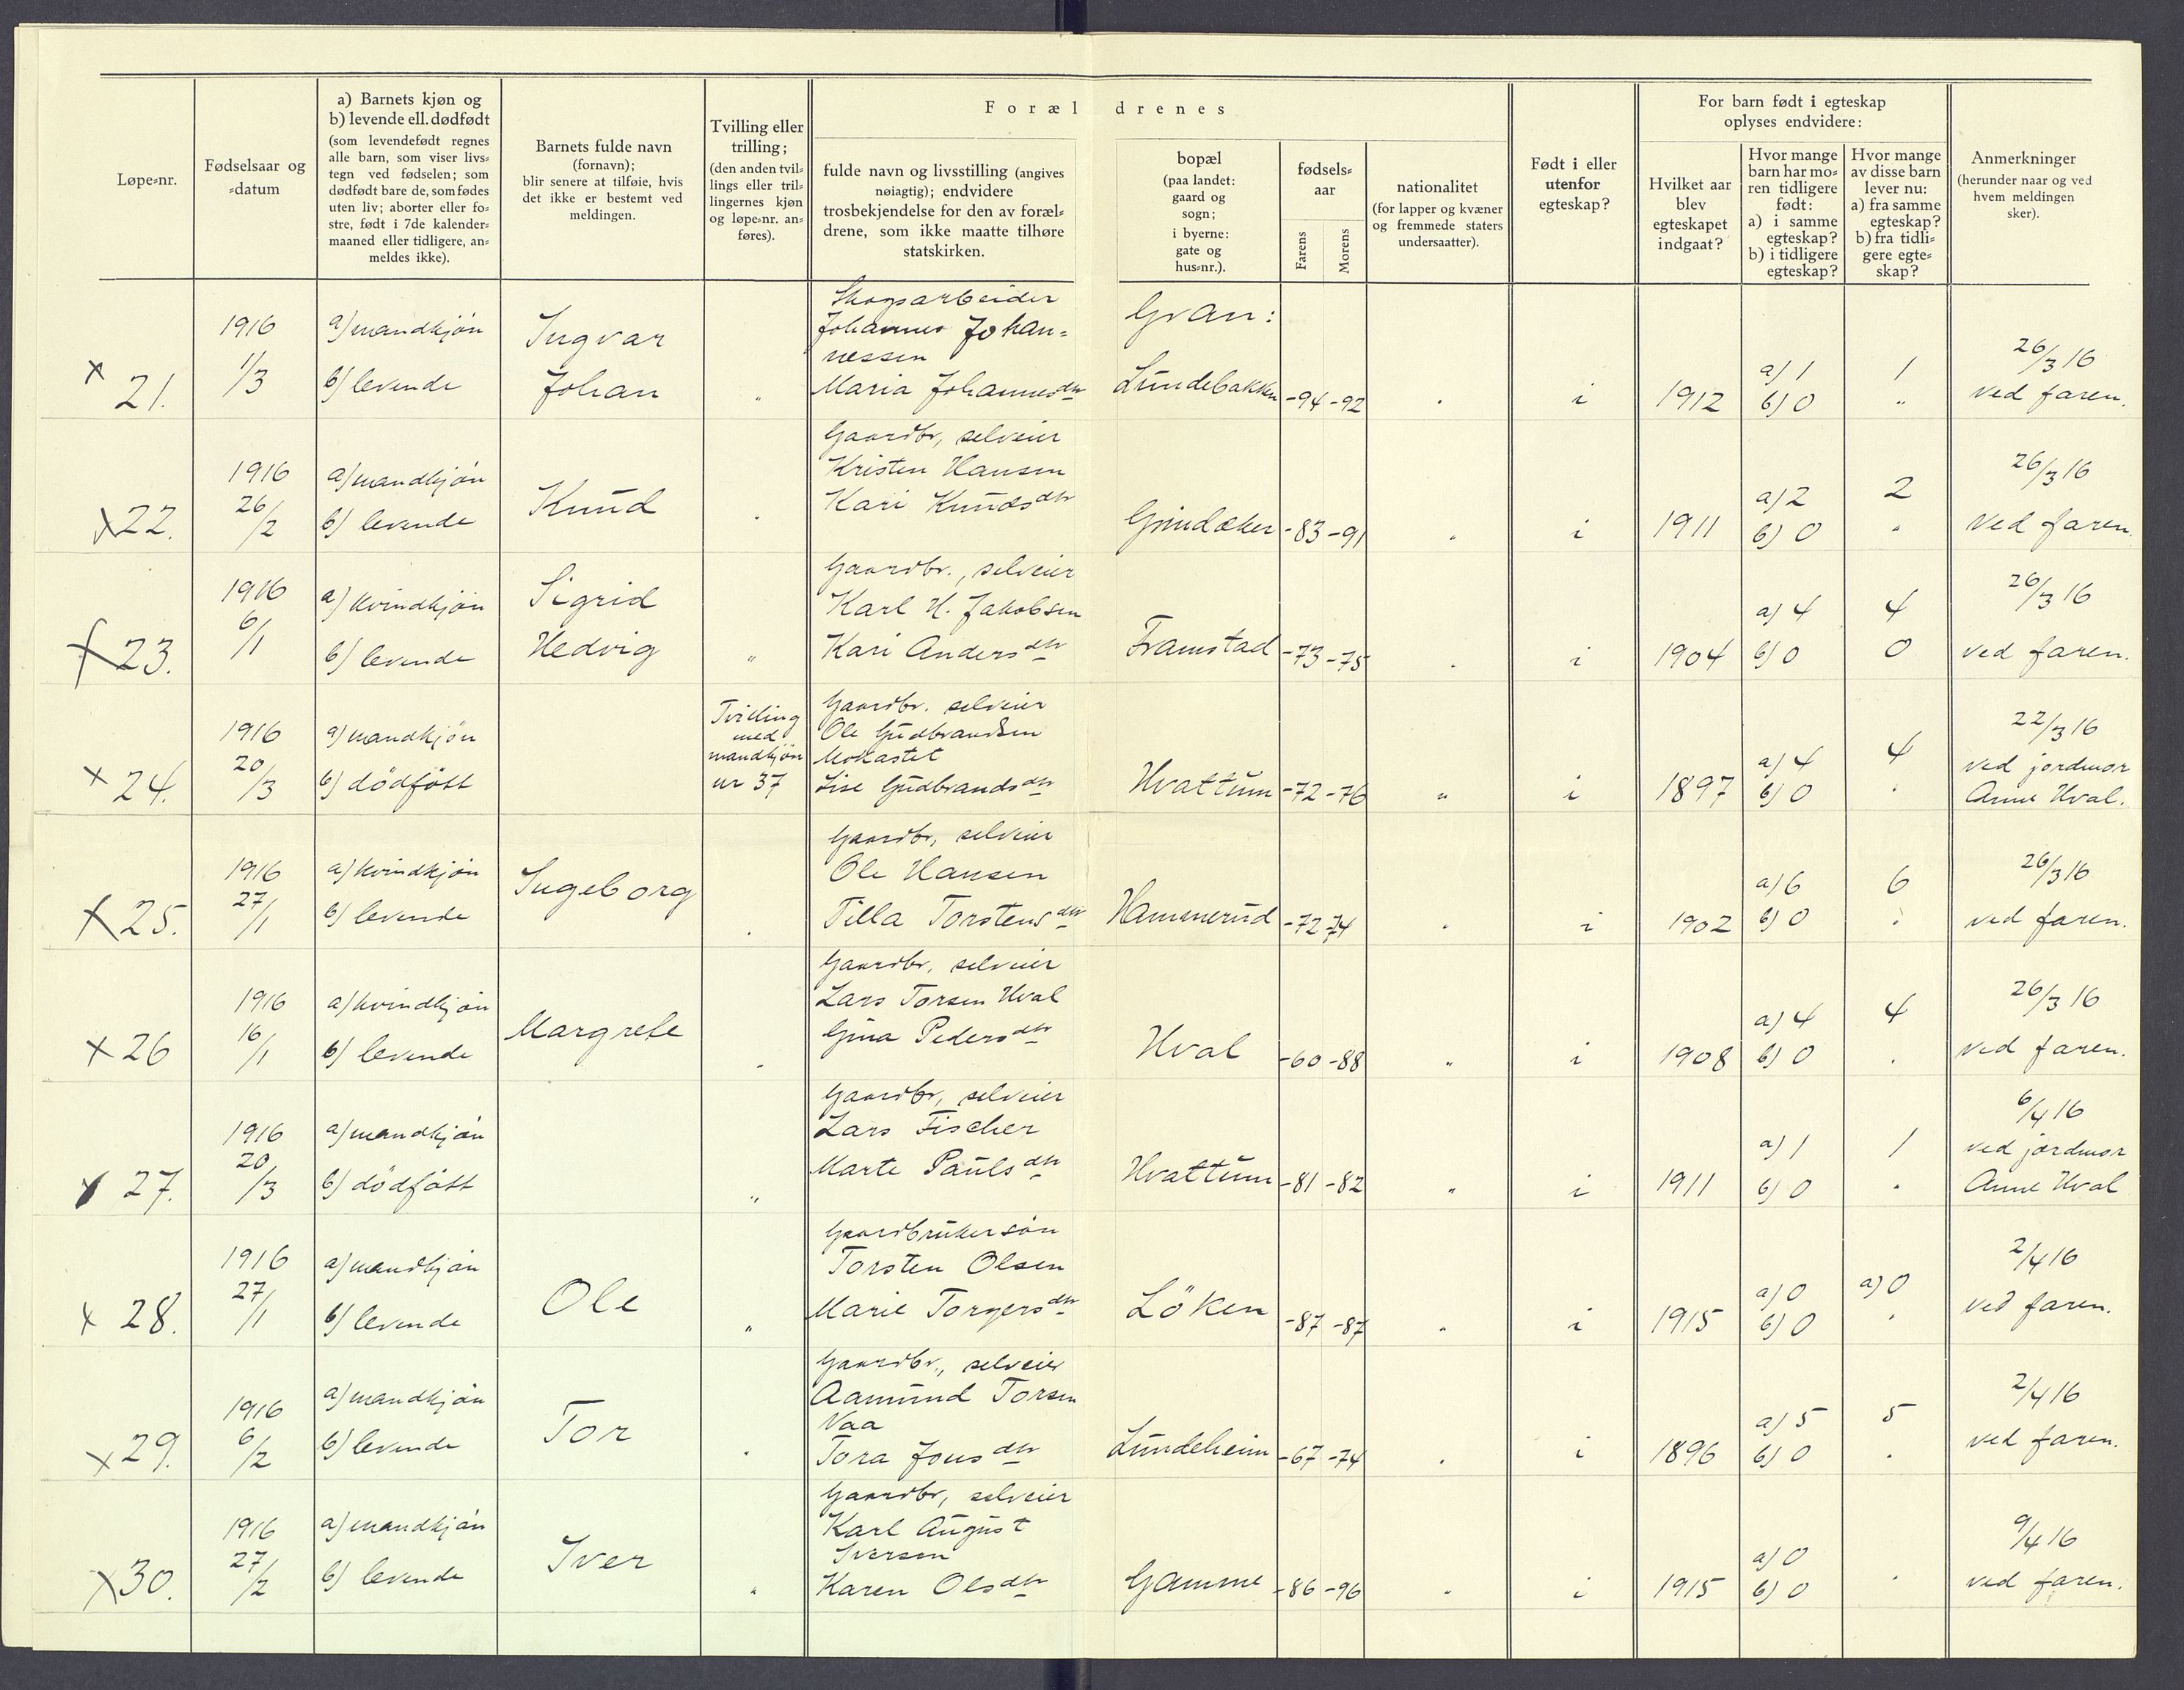 Forældrenes
For barn født i egteskap
oplyses endvidere:
Løpe-nr.
Fødselsaar og
-datum
a) Barnets kjøn og
b) levende ell. dødfødt
(som levendefødt regnes
alle barn, som viser livs-
tegn ved fødselen; som
dødfødt bare de, som fødes
uten liv; aborter eller fo-
stre, født i 7de kalender-
maaned eller tidligere, an-
meldes ikke).
Barnets fulde navn
(fornavn);
blir senere at tilføie, hvis
det ikke er bestemt ved
meldingen.
Tvilling eller
trilling;
(den anden tvil-
lings eller tril-
lingernes kjøn
og løpe-nr. an-
føres).
fulde navn og livsstilling (angives
nøiagtig); endvidere
trosbekjendelse for den av foræl-
drene, som ikke maatte tilhøre
statskirken.
bopæl
(paa landet:
gaard og
sogn;
i byerne:
gate og
hus-nr.).
fødsels-
aar
Farens
Morens
nationalitet
(for lapper og kvæner
og fremmede staters
undersaatter).
Født i eller
utenfor
egteskap?
Hvilket aar
blev
egteskapet
indgaat?
Hvor mange
barn har mo-
ren tidligere
født:
a) i samme
egteskap?
b) i tidligere
egteskap?
Hvor mange
av disse barn
lever nu:
a) fra samme
egteskap?
b) fra tidli-
gere egte-
skap?
Anmerkninger
(herunder naar og ved
hvem meldingen
sker).
x 21.
1916
1/3
a) mandkjøn
b) levende
Ingvar
Johan
"
Skogsarbeider
Johannes Johan-
nessen
Maria Johannesdtr
Gran:
Lundebakken
-94 -92
"
i
1912
a) 1
b) 0
1
"
26/3 16
ved faren.
x 22.
1916
26/2
a) mandkjøn
b) levende
Knud
"
Gaardbr, selveier
Kristen Hansen
Kari Knudsdtr
Grindaker
-83 -91
"
i
1911
a) 2
b) 0
2
"
26/3 16
ved faren.
x 23.
1916
6/1
a) kvindkjøn
b) levende
Sigrid
Hedvig
"
Gaardbr., selveier
Karl H. Jakobsen
Kari Andersdtr
Framstad
-73 -75
"
i
1904
a) 4
b) 0
4
0
26/3 16
ved faren.
x 24.
1916
20/3
a) mandkjøn
b) dödfött
Tvilling
med
mandkjøn
nr 37
Gaardbr. selveier
Ole Gudbrandsen
Mokastet
Lise Gudbrandsdtr
Hvattum
-72 -76
"
i
1897
a) 4
b) 0
4
"
22/3 16
ved jordmor
Anne Hval.
x 25.
1916
27/1
a) kvindkjøn
b) levende
Ingeborg
"
Gaardbr, selveier
Ole Hansen
Tilla Torstensdtr
Hammerud
-72 -74
"
i
1902
a) 6
b) 0
6
"
26/3 16
ved faren.
x 26
1916
16/1
a) kvindkjøn
b) levende
Margrete
"
Gaardbr, selveier
Lars Torsen Hval
Gina Pedersdtr
Hval
-60 -88
"
i
1908
a) 4
b) 0
4
"
26/3 16
ved faren.
x 27.
1916
20/3
a) mandkjøn
b) dödfött
"
Gaardbr, selveier
Lars Fischer
Marte Paulsdtr
Hvattum
-81 -82
"
i
1911
a) 1
b) 0
1
"
6/4 16
ved jordmor
Anne Hval
x 28.
1916
27/1
a) mandkjøn
b) levende
Ole
"
Gaardbrukersøn
Torsten Olsen
Marie Torgersdtr
Löken
-87 -87
"
i
1915
a) 0
b) 0
a) 0
"
2/4 16
ved faren.
x 29.
1916
6/2
a) mandkjøn
b) levende
Tor
"
Gaardbr., selveier
Aamund Torsen
Vaa
Tora Jonsdtr
Lundeheim
-67 -74
"
i
1896
a) 5
b) 0
5
"
2/4 16
ved faren.
x 30.
1916
27/2
a) mandkjøn
b) levende
Iver
"
Gaardbr, selveier
Karl August
Iversen
Karen Olsdtr
Gamme
-86 -96
"
i
1915
a) 0
b) 0
"
9/4 16
ved faren.